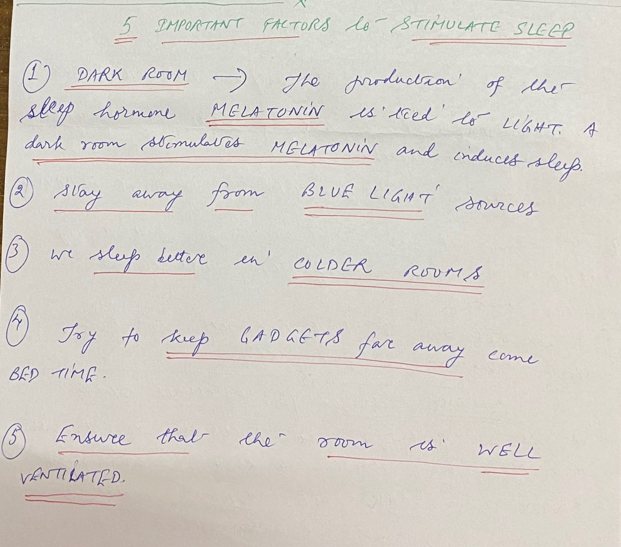 5 IMPORTANT FACTORS to STIMULATE SLEEP
① DARK ROOM → The production of the
sleep hormone MELATONIN is tied to LIGHT. A
dark room stimulates MELATONIN and induces sleep.
② Stay away from BLUE LIGHT sources
③ we sleep better in COLDER ROOMS
④ Try to keep GADGETS far away come
BED TIME.
⑤ Ensure that the room is WELL
VENTILATED.